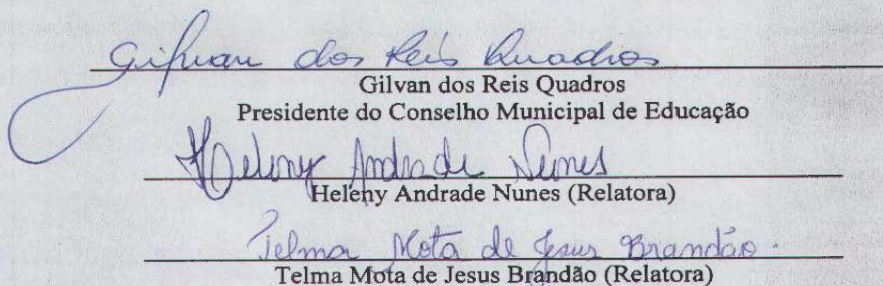 Gilvan dos Reis Quadros
Gilvan dos Reis Quadros
Presidente do Conselho Municipal de Educação
Heleny Andrade Nunes
Heleny Andrade Nunes (Relatora)
Telma Mota de Jesus Brandão.
Telma Mota de Jesus Brandão (Relatora)